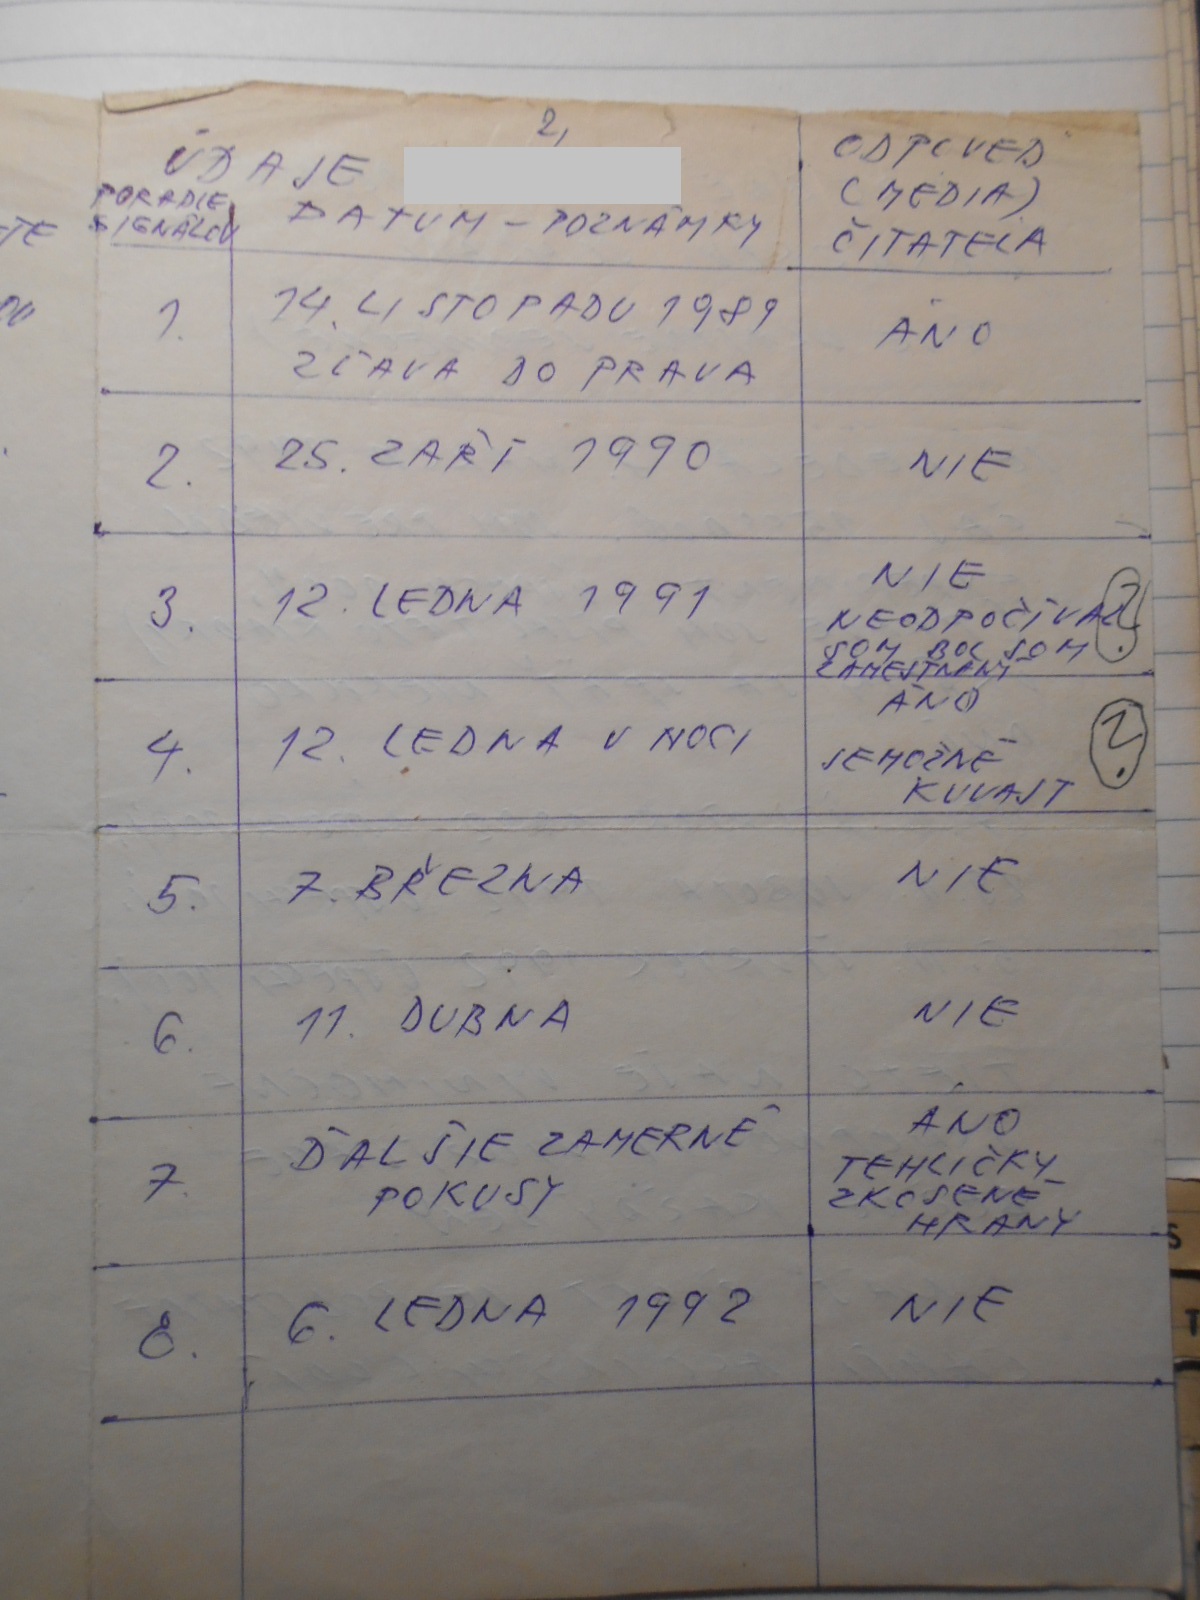 2,
ÚDAJE
PORADIE
SIGNÁLOV
DATUM – POZNÁMKY
ODPOVEĎ
(MEDIA)
ČITATEĽA
1.
14. LISTOPADU 1989
ZĽAVA DO PRAVA
ÁNO
2.
25. ZAŘÍ 1990
NIE
3.
12. LEDNA 1991
NIE
NEODPOČÍVAL
SOM BOL SOM
ZAMESTNANÝ
?
4.
12. LEDNA V NOCI
ÁNO
JEMOŽNÉ
KUVAST
?
5.
7. BŘEZNA
NIE
6.
11. DUBNA
NIE
7.
ĎALŠIE ZAMERNÉ
POKUSY
ÁNO
TEHLIČKY
ZKOSENÉ
HRANY
8.
6. LEDNA 1992
NIE